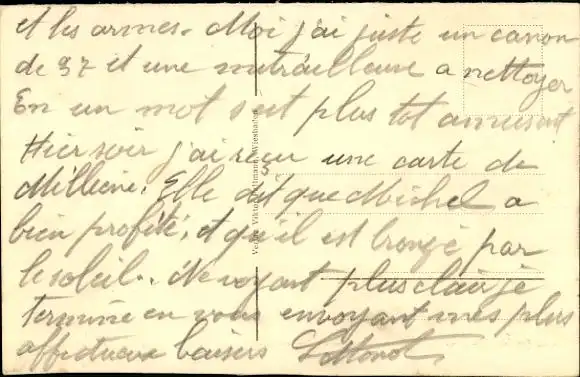 et les armes. Moi j'ai juste un canon
de 37 et une mitrailleuse a nettoyer
En un mot s'est plus tot amusant
Hier soir j'ai reçu une carte de
Elle dit que Michel a
bien profité, et qu'il est bronzé par
le soleil. Ne voyant plus clair je
termine en vous envoyant mes plus
affectueux baisers
Verlag Viktor Wiesbaden